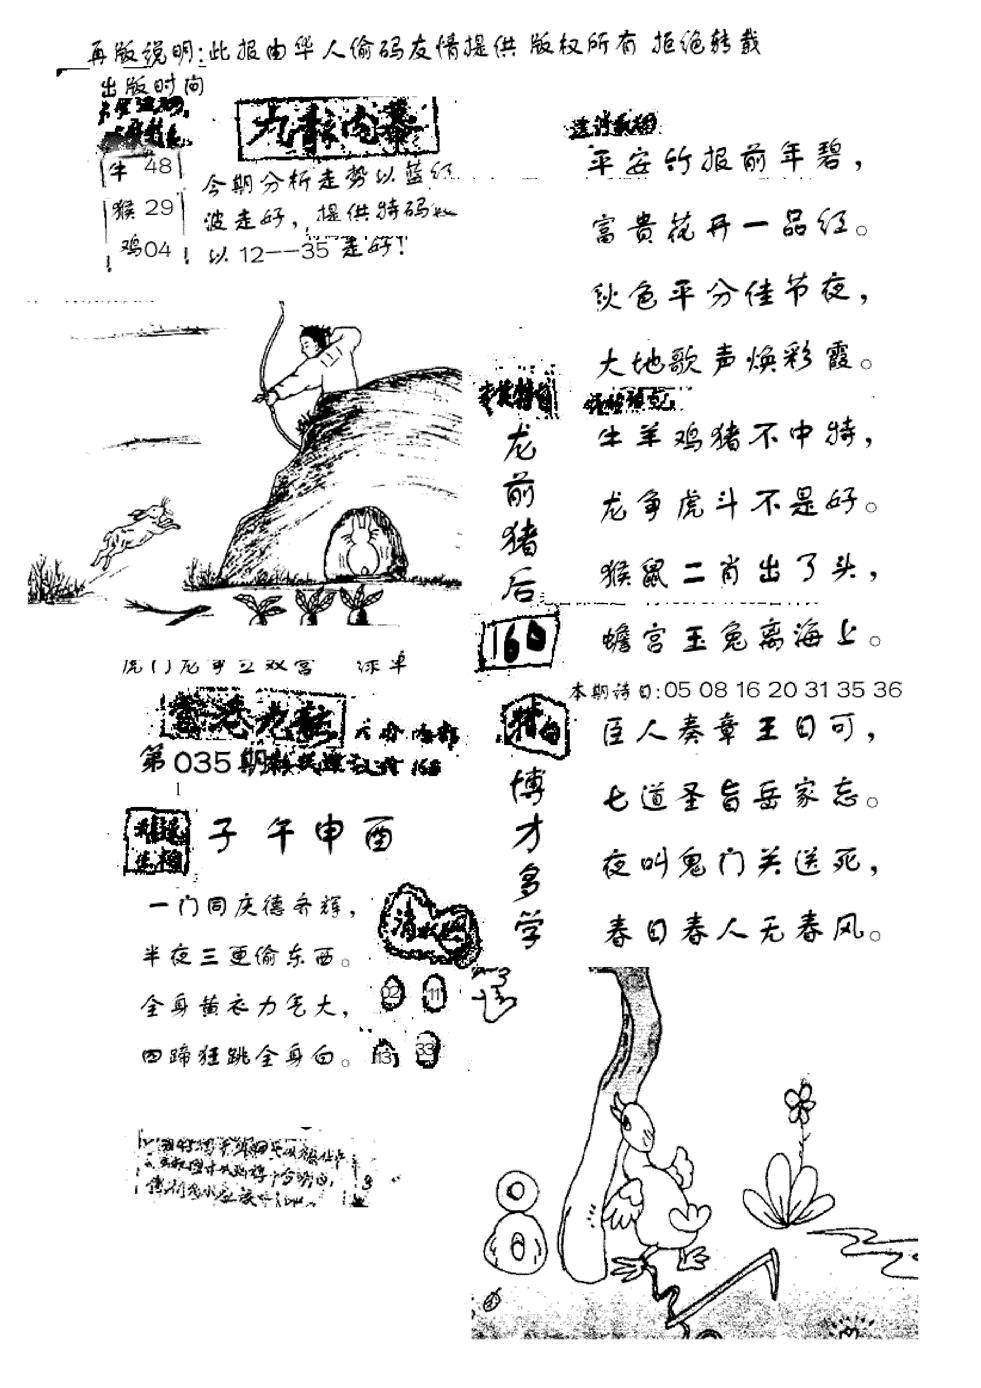 再版说明:此报由华人偷码友情提供 版权所有 拒绝转载
出版时间
九龍内幕
牛 48
猴 29
鸡04
今期分析走势以蓝红
波走好，提供特码
以12--35走好!
平安竹报前年碧，
富贵花开一品红。
秋色平分佳节夜，
大地歌声焕彩霞。
龙前猪后
160
牛羊鸡猪不中特，
龙争虎斗不是好。
猴鼠二肖出了头，
蟾宫玉兔离海上。
本期诗日:05 08 16 20 31 35 36
虎门龙争立双宫
香港九龍
第035期
子午申酉
一门同庆德齐辉，
半夜三更偷东西。
全身黄衣力气大，
四蹄狂跳全身白。
02 11
13 33
特白
博才多学
臣人奏章王日可，
七道圣旨岳家忘。
夜叫鬼门关送死，
春日春人无春风。